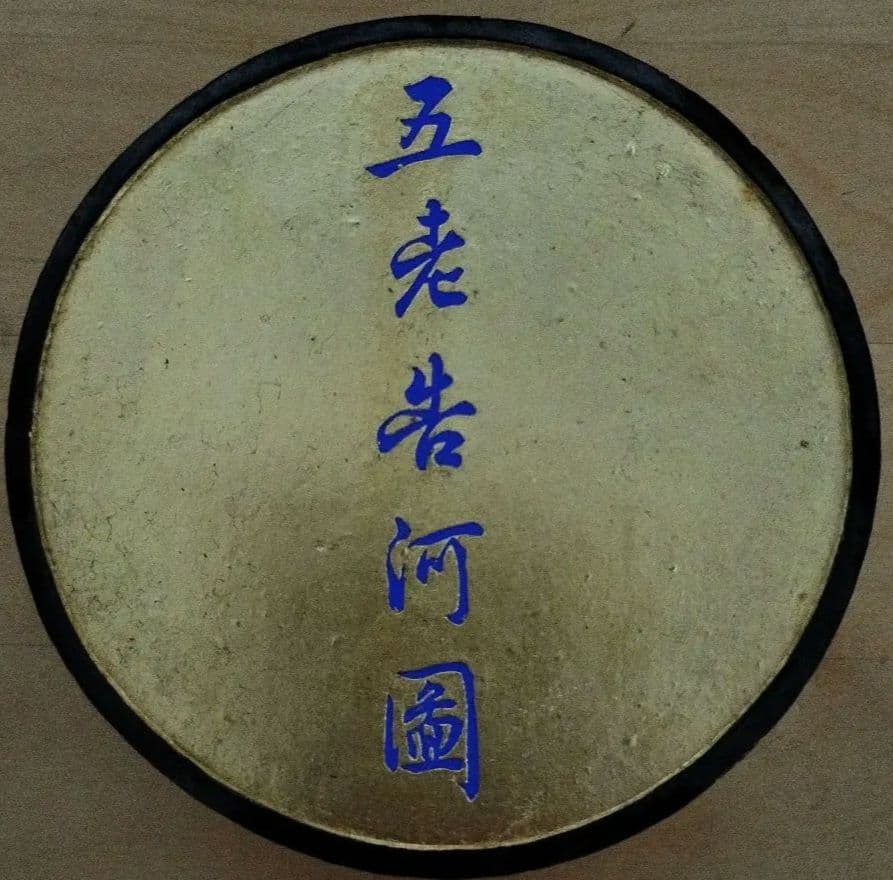 五老告河圖